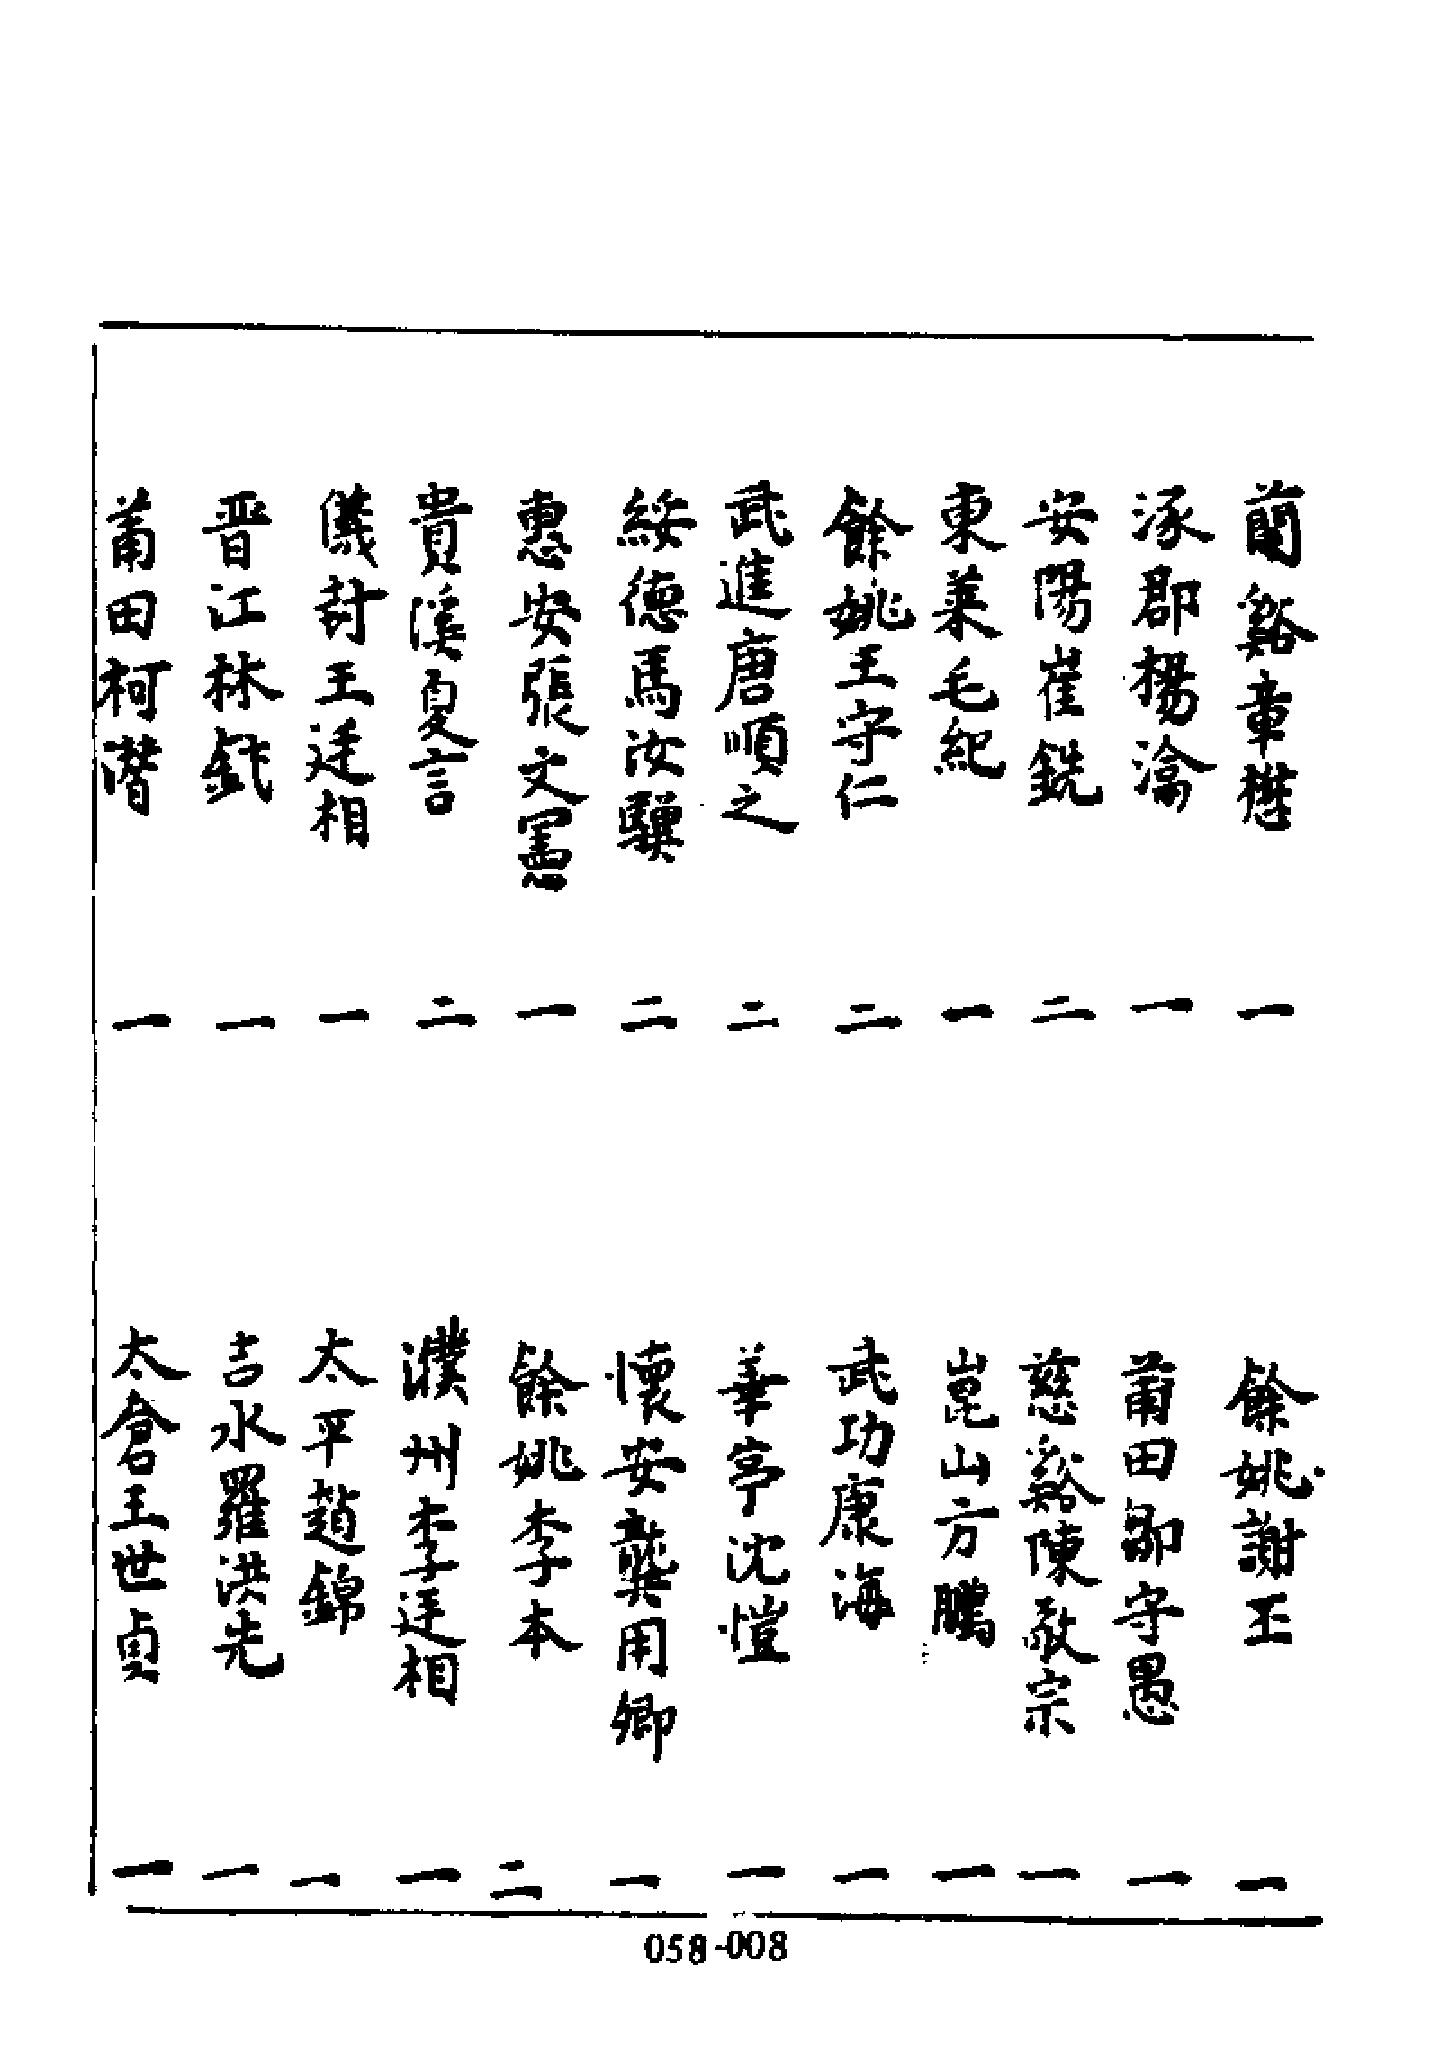 蘭谿章懋 一
餘姚謝丕 一
涿郡楊瀹 一
莆田鄒守愚 一
安陽崔銑 二
慈谿陳敬宗 一
東萊毛紀 一
崑山方鵬 一
餘姚王守仁 二
武功康海 一
武進唐順之 二
華亭沈愷 一
綏德馬汝驥 二
懷安龔用卿 一
惠安張文憲 一
餘姚李本 二
貴溪夏言 二
濮州李廷相 一
儀封王廷相 一
太平趙錦 一
晋江林釴 一
吉水羅洪先 一
莆田柯潛 一
太倉王世貞 一
058-008